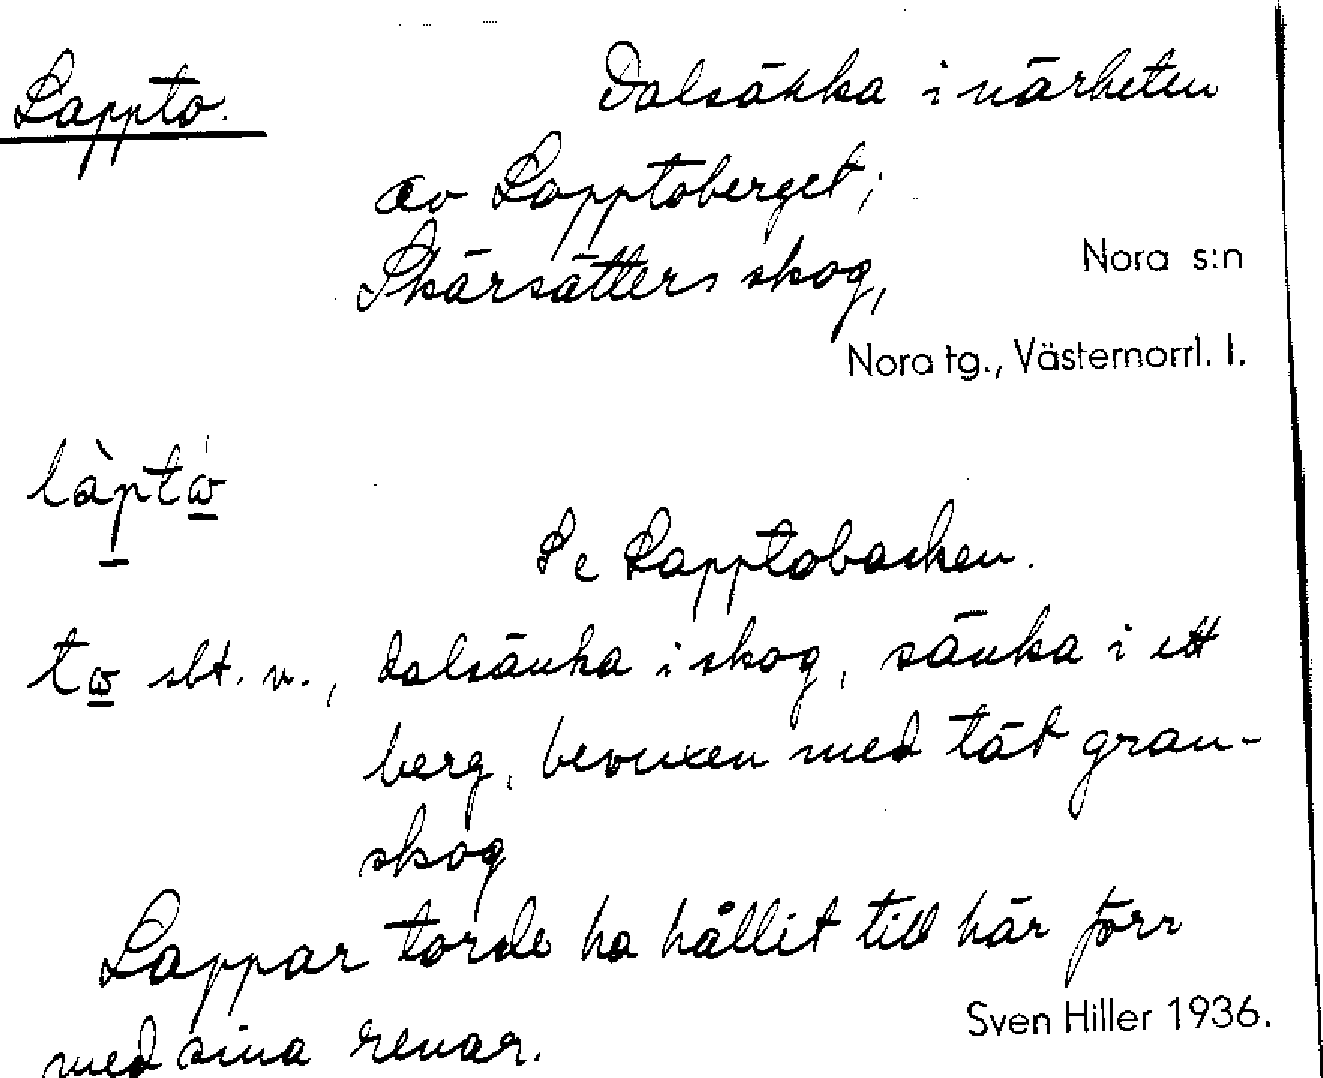 Lappto. Dalsänka i närheten
av Lapptoberget;
Skärsätters skog, Nora s:n
Nora tg., Västernorrl. l.
làptώ̲
Se Lapptobacken.
tω̲ sbt. n., dalsänka i skog, sänka i ett
berg, bevuxen med tät gran-
skog
Lappar torde ha hållit till här förr
med sina renar.
Sven Hiller 1936.